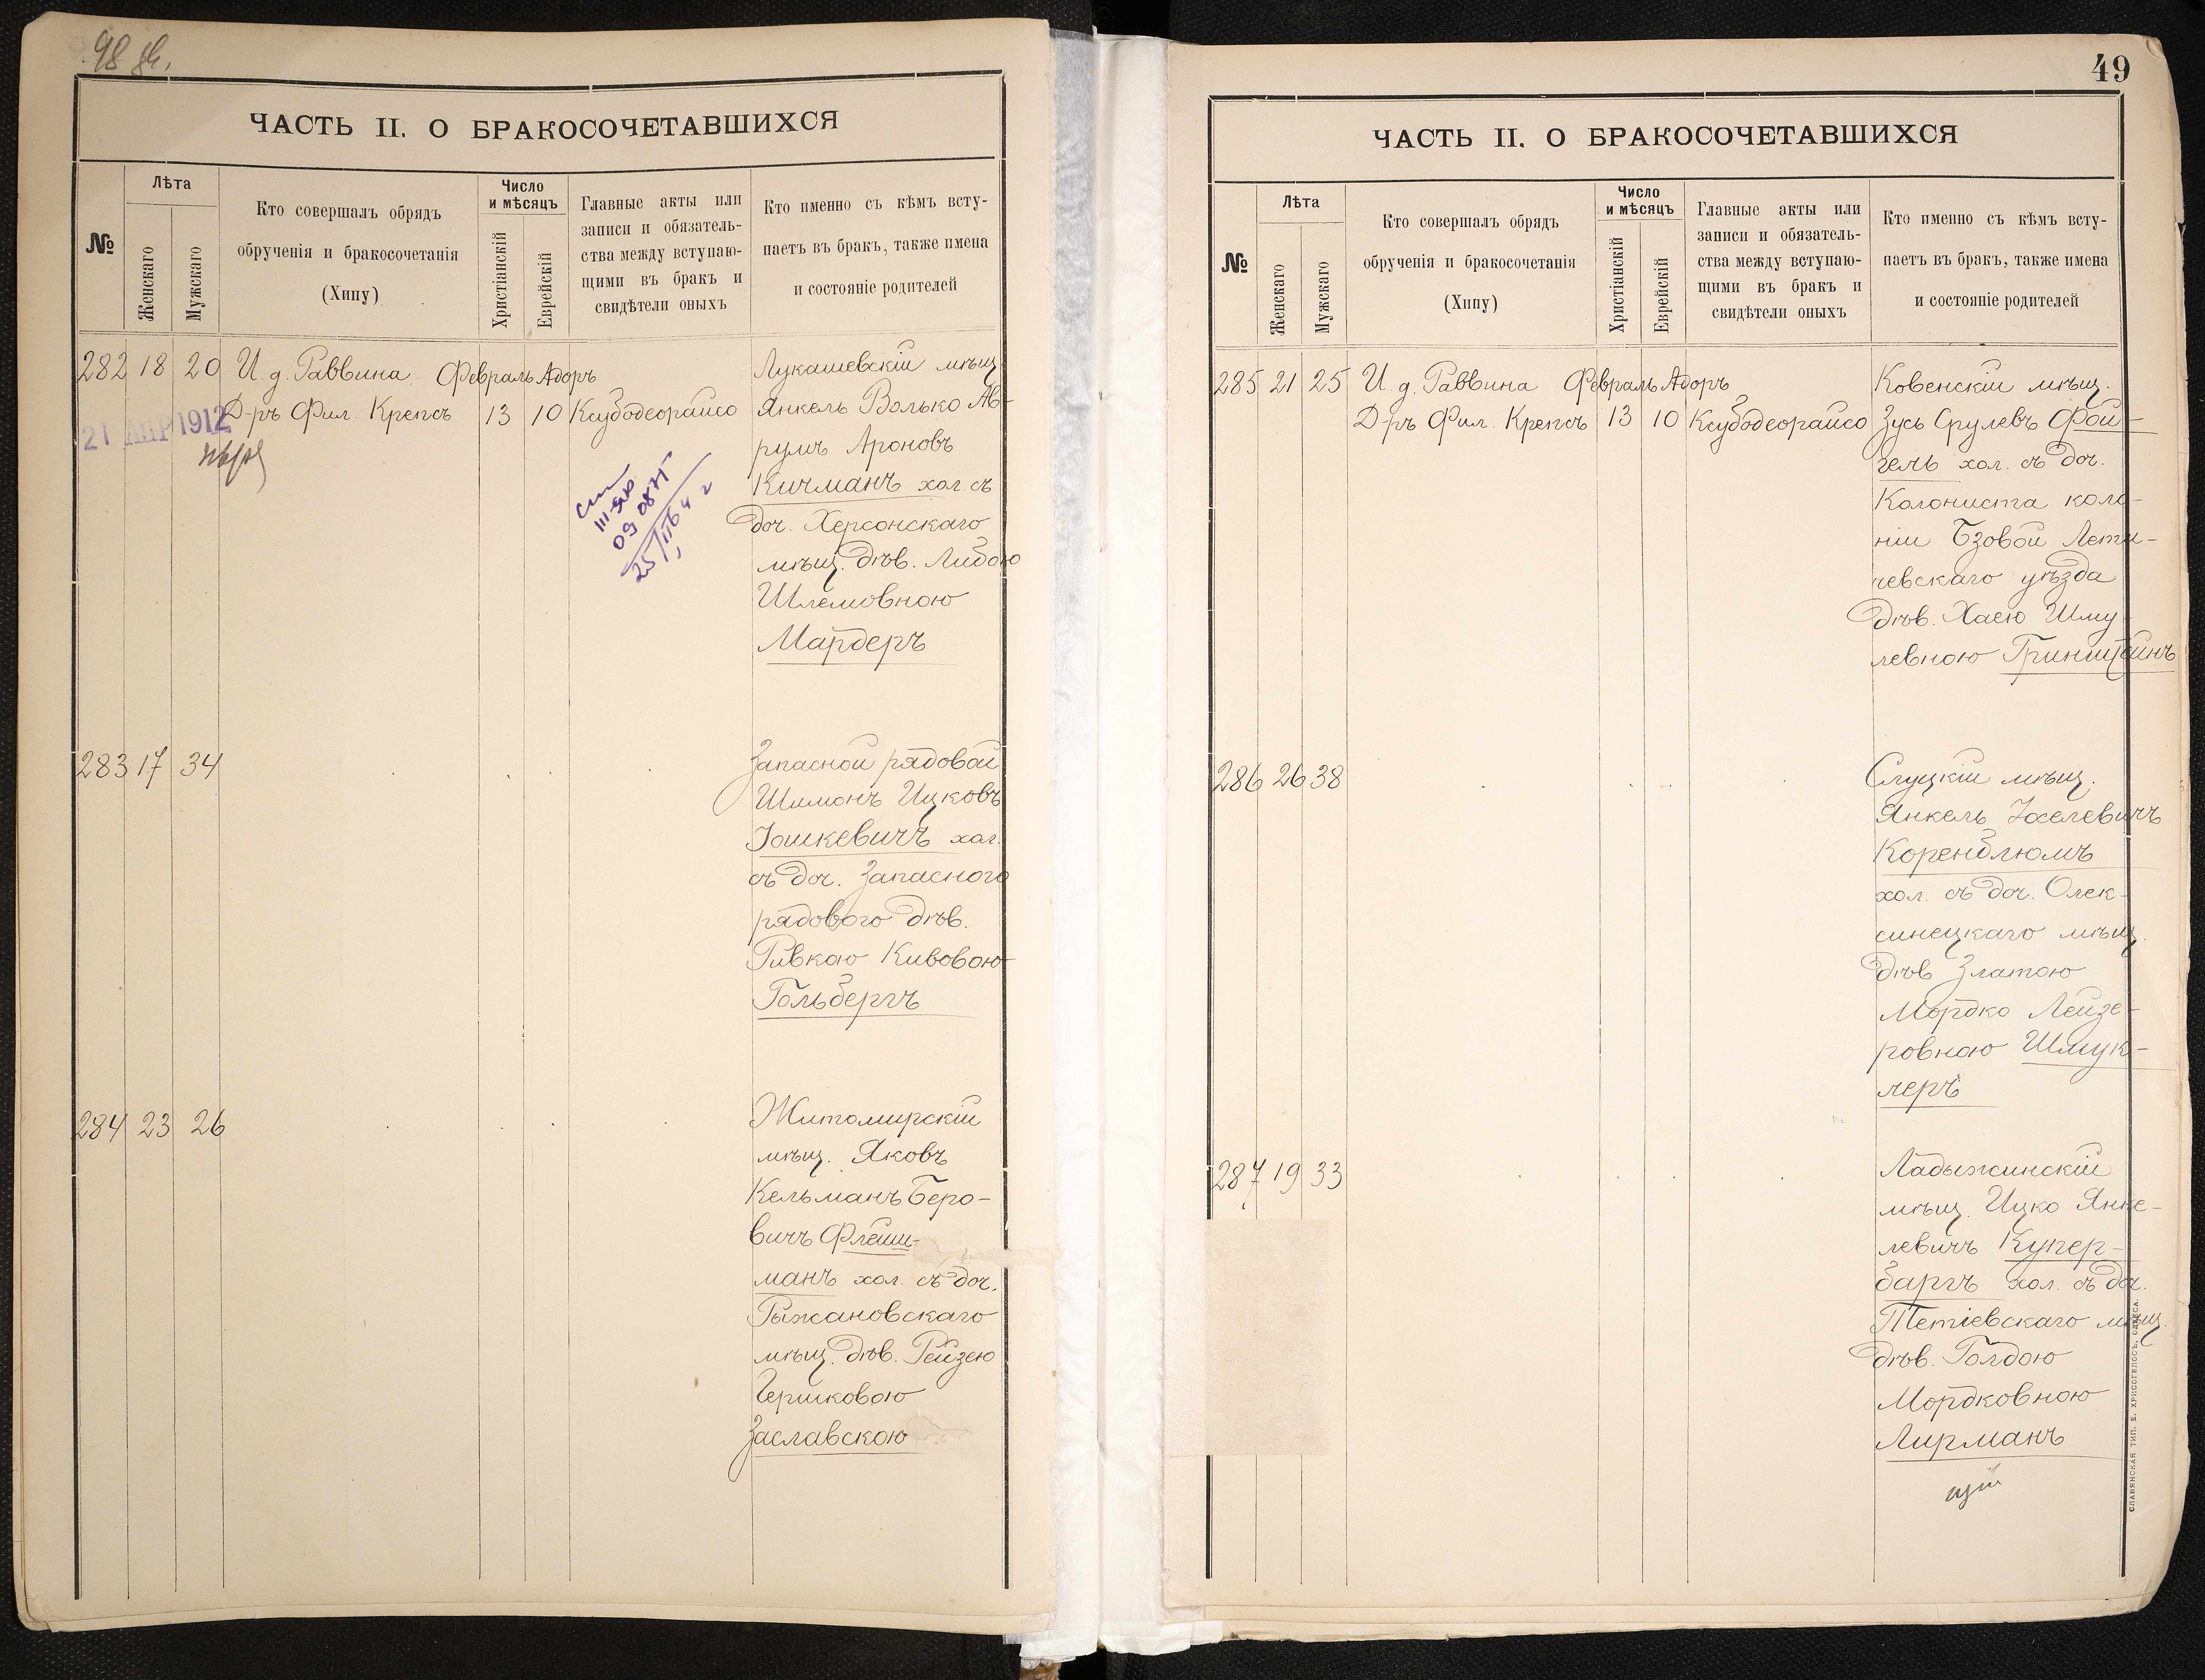 ЧАСТЬ II. О БРАКОСОЧЕТАВШИХСЯ
№
Лѣта
Женскаго
Мужскаго
Кто совершалъ обрядъ
обрученія и бракосочетанія
(Хипу)
Число
и мѣсяцъ
Христіанскій
Еврейскій
Главные акты или
записи и обязатель-
ства между вступаю-
щими въ бракъ и
свидѣтели оныхъ
Кто именно съ кѣмъ всту-
паетъ въ бракъ, также имена
и состояніе родителей
282 18 20 И. д. Раввина Февраль Адоръ
Д-ръ Фил. Крепсъ 13 10 Ксубодеорайсо
21 АПР 1912
Лукашевскій мѣщ.
Янкель Волько Ав-
румъ Ароновъ
Кичманъ хол. съ
доч. Херсонскаго
мѣщ. дѣв. Либою
Шлемовною
Мардеръ
283 17 34
Запасной рядовой
Шимонъ Ицковъ
Іошкевичъ хол.
съ доч. Запасного
рядового дѣв.
Ривкою Кивовою
Гольбергъ
284 23 26
Житомирскій
мѣщ. Яковъ
Кельманъ Беро-
вичъ Флейш-
манъ хол. съ доч.
Рыжановскаго
мѣщ. дѣв. Рейзею
Гершковою
Заславскою
49
ЧАСТЬ II. О БРАКОСОЧЕТАВШИХСЯ
№
Лѣта
Женскаго
Мужскаго
Кто совершалъ обрядъ
обрученія и бракосочетанія
(Хипу)
Число
и мѣсяцъ
Христіанскій
Еврейскій
Главные акты или
записи и обязатель-
ства между вступаю-
щими въ бракъ и
свидѣтели оныхъ
Кто именно съ кѣмъ всту-
паетъ въ бракъ, также имена
и состояніе родителей
285 21 25 И. д. Раввина Февраль Адоръ
Д-ръ Фил. Крепсъ 13 10 Ксубодеорайсо
Ковенскій мѣщ.
Зусь Срулевъ Фой-
гель хол. съ доч.
Колониста коло-
ніи Бзовой Лети-
чевскаго уѣзда
дѣв. Хаею Шму-
левною Гринштейнъ
286 26 38
Слуцкій мѣщ.
Янкель Хоселевичъ
Коренблюмъ
хол. съ доч. Олек-
синецкаго мѣщ.
дѣв Златою
Мордко Лейзе-
ровною Шмук-
леръ
287 19 33
Ладыжинскій
мѣщ. Ицко Янке-
левичъ Купер-
баргъ хол. съ доч.
Тетіевскаго мѣщ.
дѣв. Голдою
Мордковною
Лирманъ
СЛАВЯНСКАЯ ТИП. Е. ХРИСОГЕЛОСЪ, ОДЕССА.